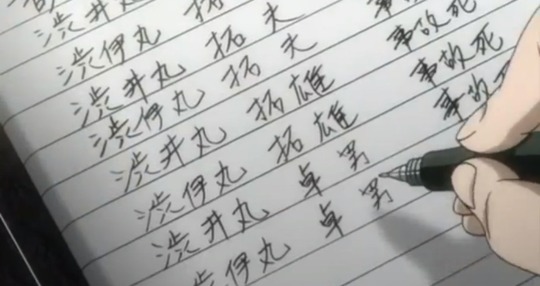 渋井丸
渋伊丸 拓
渋井丸 拓夫
渋伊丸 拓夫 事故死
渋井丸 拓雄 事故死
渋伊丸 拓雄 事故死
渋井丸 卓男
渋伊丸 卓男